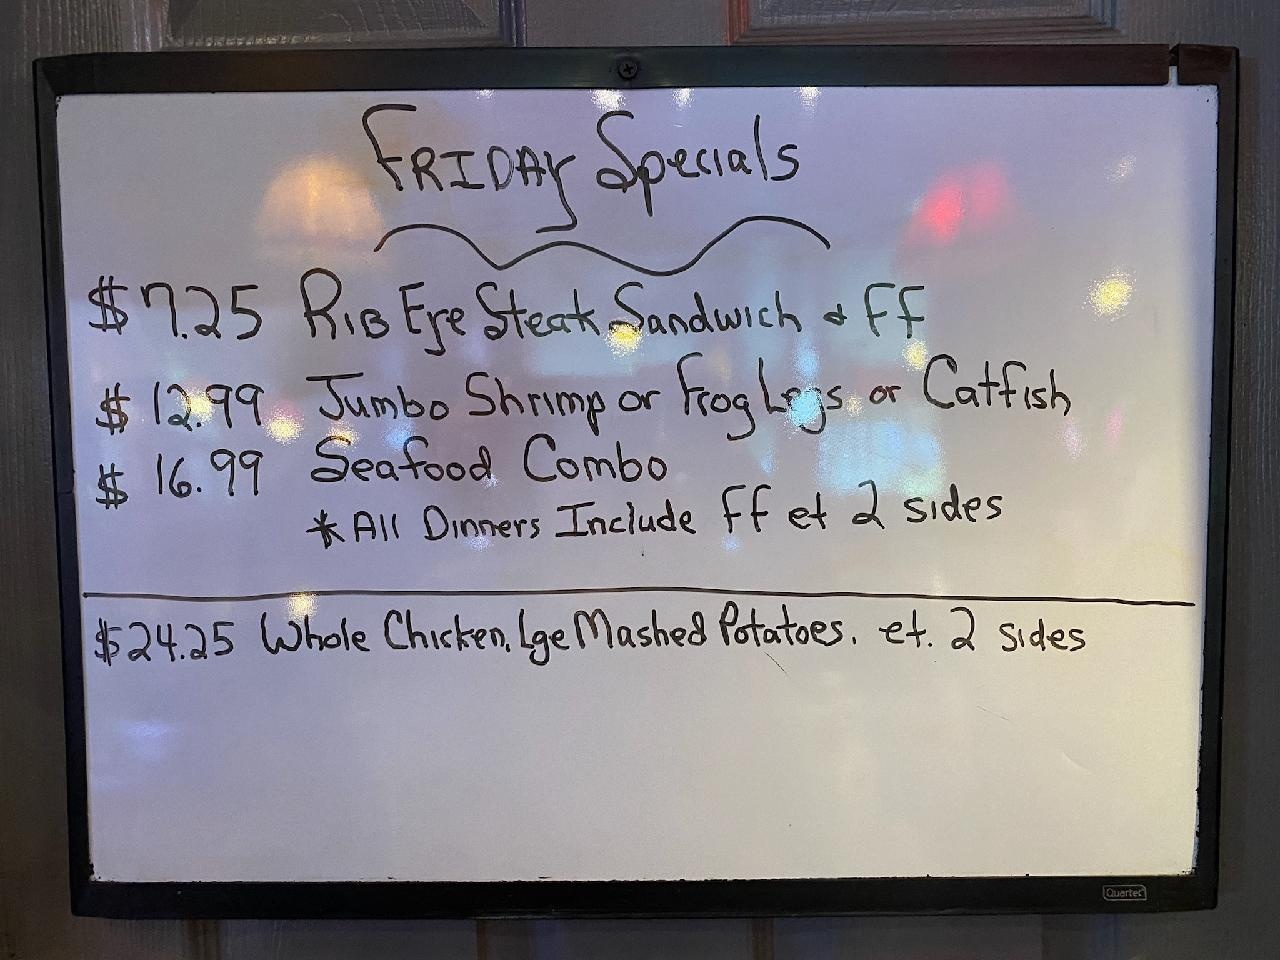 FRIDAY Specials
$7.25 RIB Eye Steak Sandwich & FF
$12.99 Jumbo Shrimp or Frog Legs or Catfish
$16.99 Seafood Combo
*All Dinners Include FF et 2 sides
$24.25 Whole Chicken, Lge Mashed Potatoes. et. 2 sides
Quartet